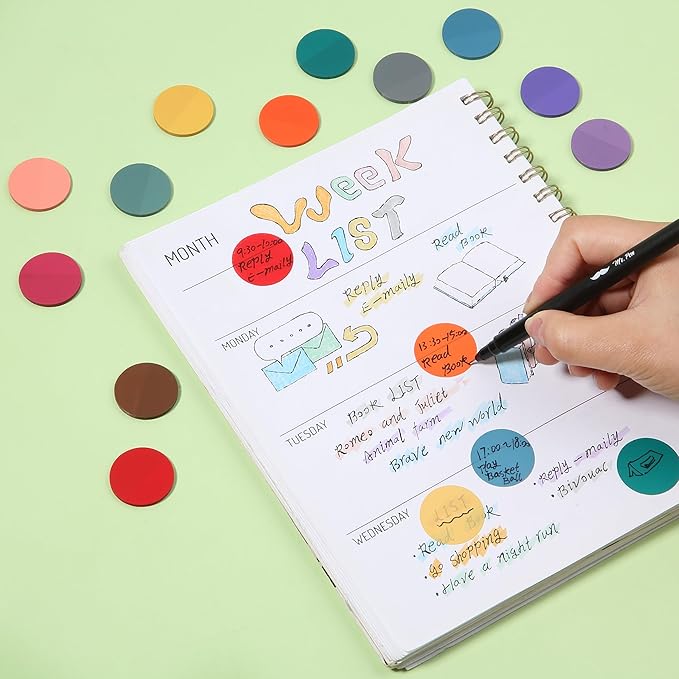 WEEK
LIST
MONTH
9:30-10:00
REPLY
E-maily
Read
Book
Reply
E-maily
MONDAY
13:30-15:00
Read
Book
Mr. Pen
TUESDAY
Book LIST
Romeo and Juliet
Animal farm
Brave new world
17:00~18:00
Play
Basket
Ball
· Reply - maily
· Bivouac
WEDNESDAY
LIST
Read Book
· go shopping
· Have a night run